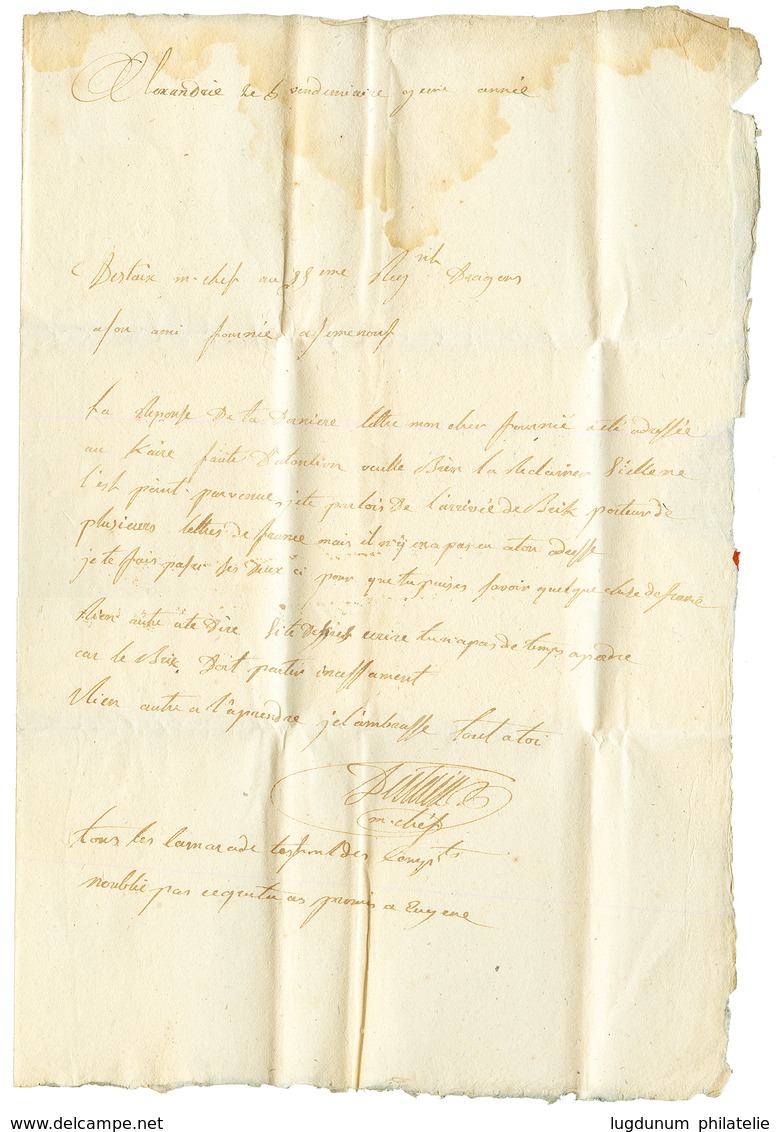 Alexandrie le 6 vendemiaire 9eme année
Destaix m. chef au eme Reg nt Dragons
a son ami fournié
La Reponse De ta Derniere lettre mon cher fournié a été adressée
au Kaire faute D'atention veuille Bien la Reclamer Si elle ne
t'est point parvenue, je te parlois De l'arrivée de Brik porteur de
plusieurs lettres de france mais il n'y en a pas eu a ton adresse
je te fais passer ses Deux ci pour que tu puises savoir quelque chose de france
Rien autre a te Dire Si te Desires ecrire tu n'a pas de temps a perdre
car le Brix Doit partir incessament
Rien autre a t'aprendre je t'ambrasse tout a toi
Destaix
m. chef
tous les Camarade te font des Compts
n'oublie pas ce que tu as promis a Eugene
www.delcampe.net
lugdunum philatelie